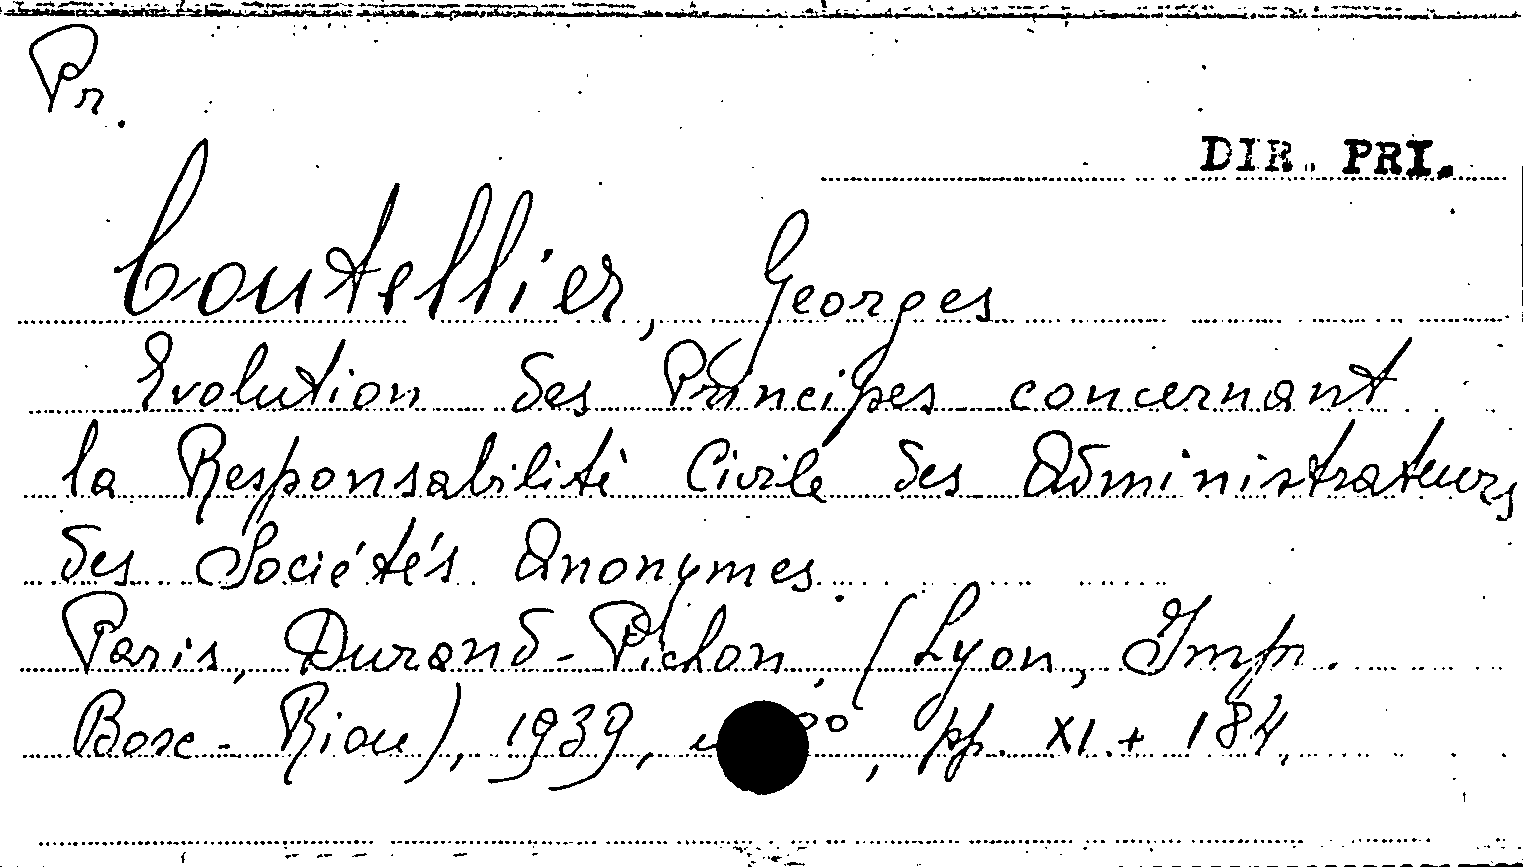 Pr.
DIR. PRI.
Coutellier, Georges
Evolution des Principes concernant
la Responsabilité Civile des Administrateurs
des Sociétés Anonymes.
Paris, Durand-Pichon, (Lyon, Impr.
Bosc-Riou), 1939, pp. XI + 184.